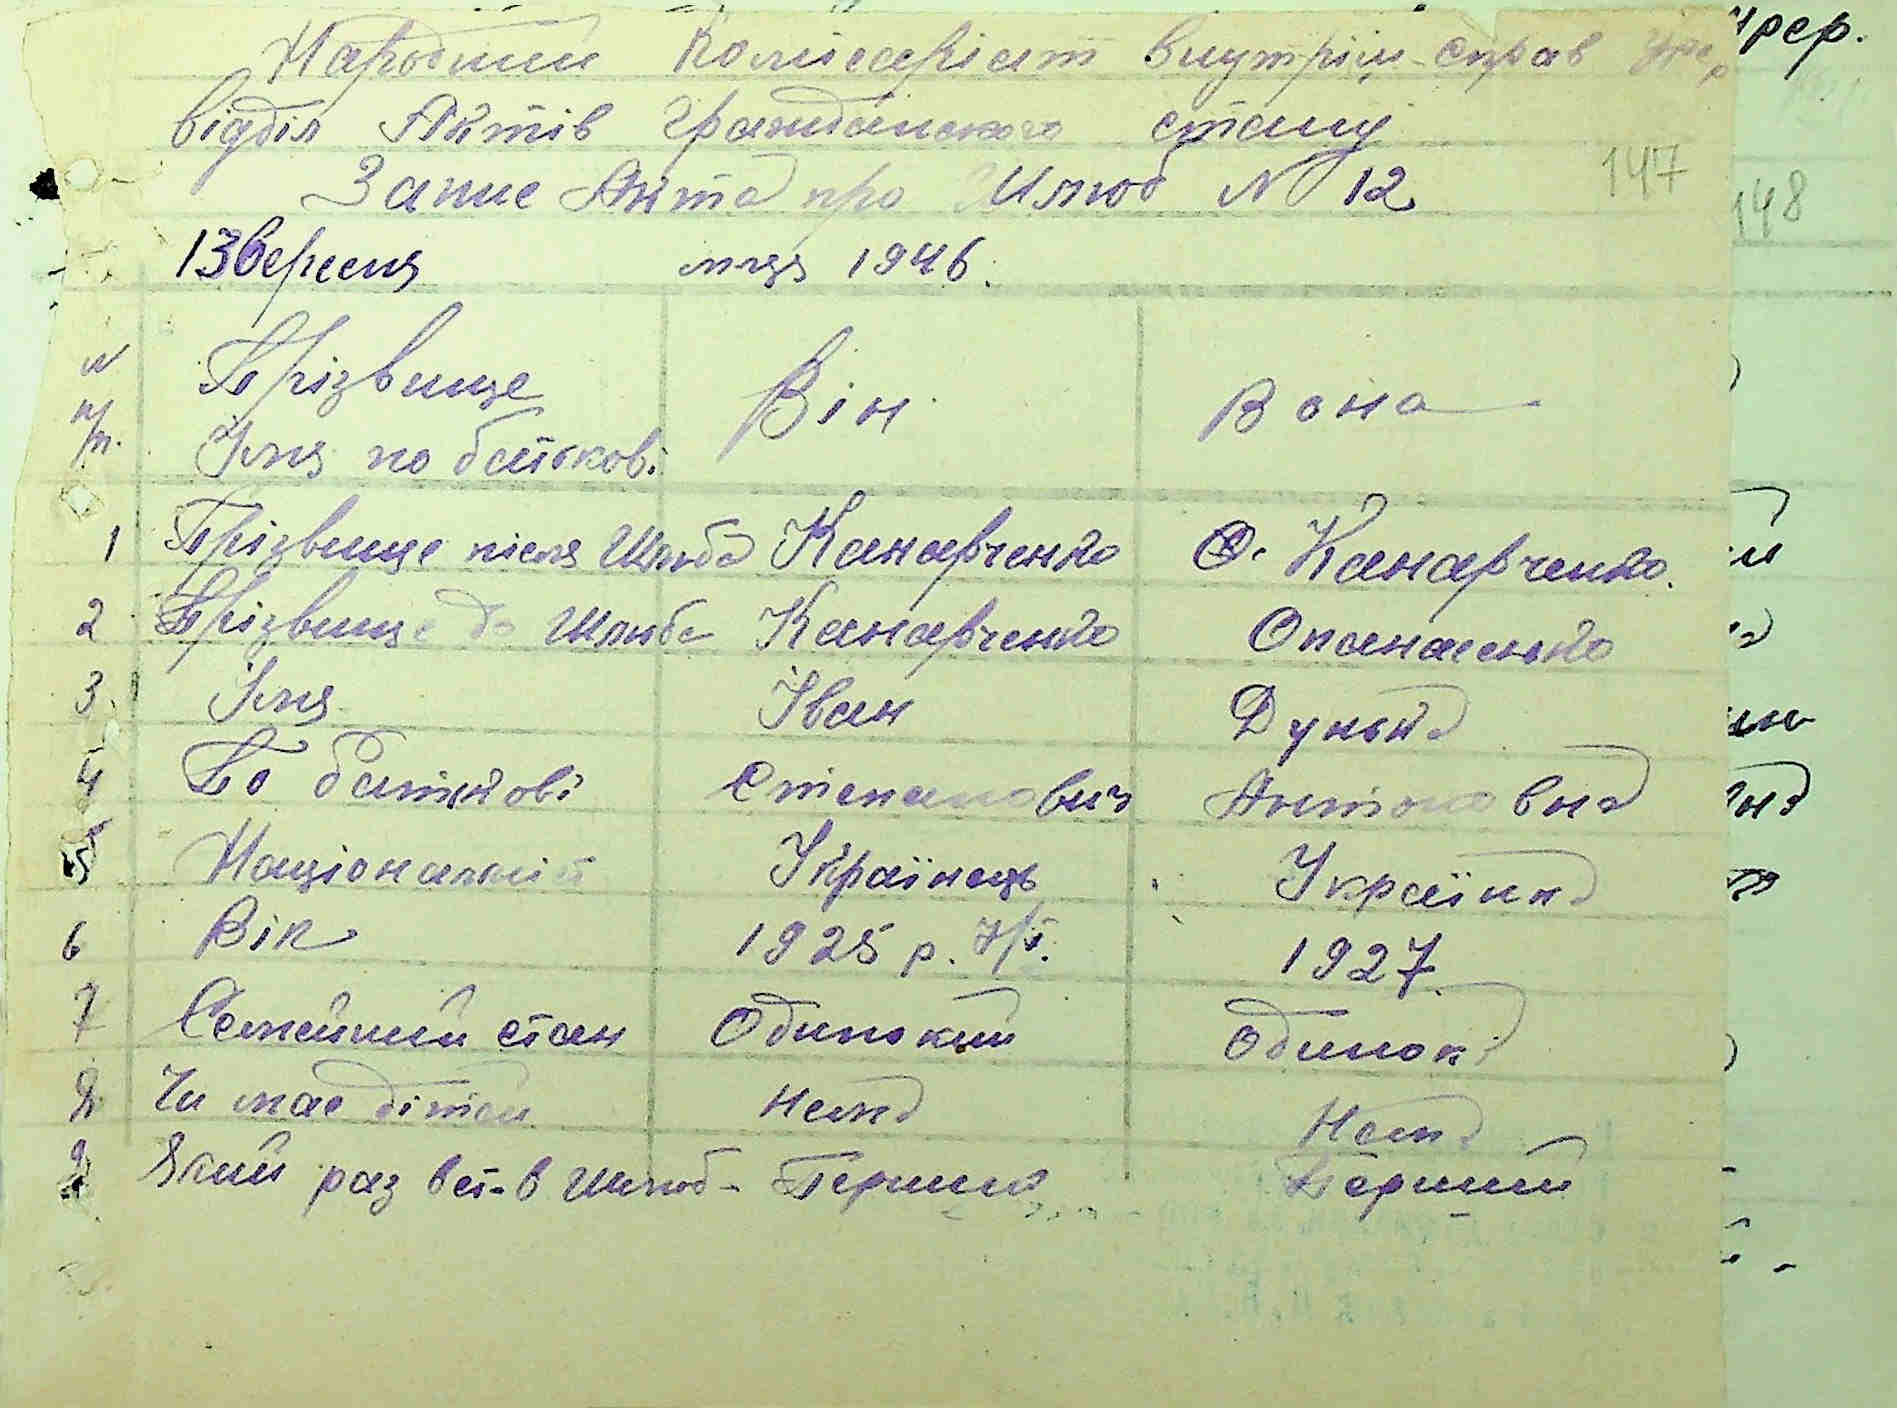 Народний Комісаріат внутріш. справ Урср
відділ Актів Гражданского стану
Запис Акта про Шлюб № 12
147
148
13 вересня м-ця 1946.
№ п/п. Прізвище Імя по батькові Він Вона
1 Прізвище після Шлюба Канавченко О. Канавченко.
2 Прізвище до Шлюба Канавченко Опанасенко
3 Імя Іван Дунька
4 По батькові Степанович Антоновна
5 Національній Українець Українка
6 Вік 1925 р. 1927
7 Семейний стан Одинокий Одинока
8 Чи має дітей Нема Нема
9 Який раз вст-в Шлюб- Перший Перший